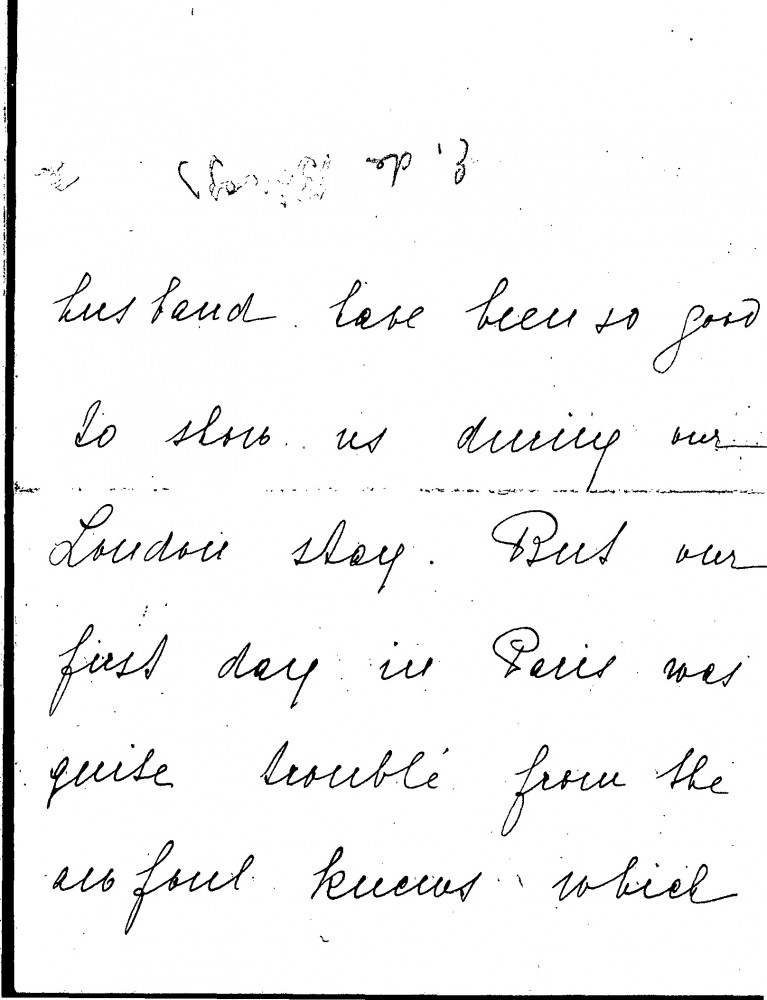 husband have been so good
to show us during our
London stay. But our
first day in Paris was
quite troublé from the
awfoul knews which